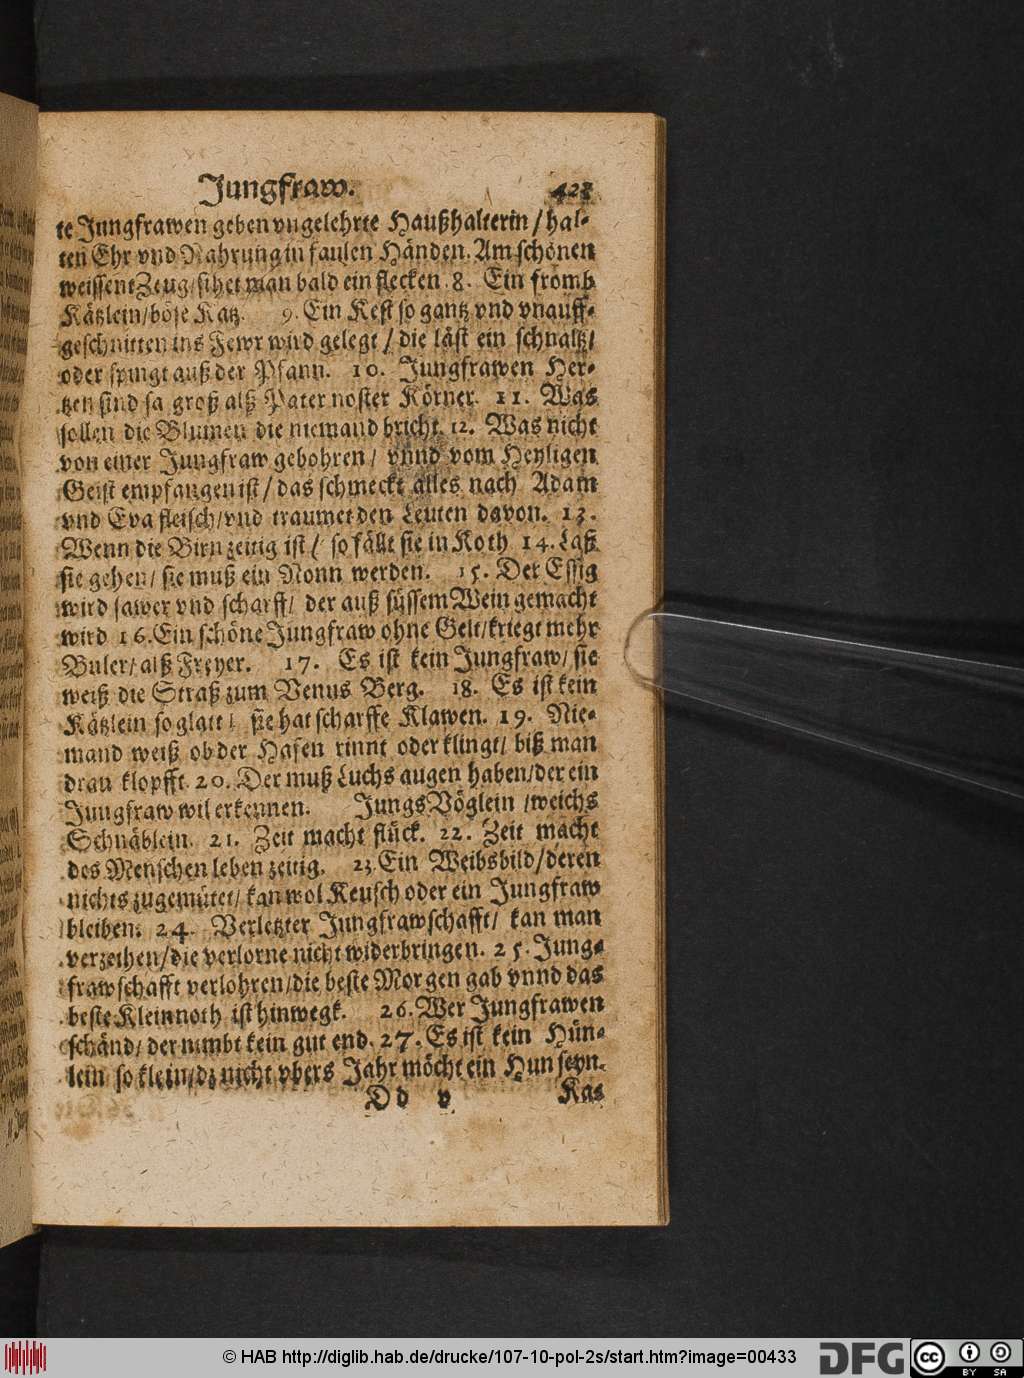 Jungfraw. 423
te Jungfrawen geben vngelehrte Haußhalterin / hal-
ten Ehr vnd Nahrung in faulen Händen. Am schönen
weissen Zeug / sihet man bald ein flecken. 8. Ein fromb
Kätzlein / böse Katz. 9. Ein Kest so gantz vnd vnauff-
geschnitten ins Fewr wird gelegt / die läst ein schnaltz /
oder springt auß der Pfann. 10. Jungfrawen Her-
tzen sind sa groß alß Pater noster Körner. 11. Was
sollen die Blumen die niemand bricht. 12. Was nicht
von einer Jungfraw gebohren / vnnd vom Heyligen
Geist empfangen ist / das schmeckt alles nach Adam
vnd Eva fleisch / vnd traumet den Leuten davon. 13.
Wenn die Birn zeitig ist / so fällt sie in Koth 14. Laß
sie gehen / sie muß ein Nonn werden. 15. Der Essig
wird sawer vnd scharff / der auß süssem Wein gemacht
wird 16. Ein schöne Jungfraw ohne Gelt / kriegt mehr
Buler / alß Freyer. 17. Es ist kein Jungfraw / sie
weiß die Straß zum Venus Berg. 18. Es ist kein
Kätzlein so glatt / sie hat scharffe Klawen. 19. Nie-
mand weiß ob der Hafen rinnt oder klingt / biß man
dran klopfft. 20. Der muß Luchs augen haben / der ein
Jungfraw wil erkennen. Jungs Vöglein / weichs
Schnäblein. 21. Zeit macht flück. 22. Zeit macht
des Menschen leben zeitig. 23. Ein Weibsbild / deren
nichts zugemütet / kan wol Keusch oder ein Jungfraw
bleiben. 24. Verletzter Jungfrawschafft / kan man
verzeihen / die verlorne nicht widerbringen. 25. Jung-
frawschafft verlohren / die beste Morgen gab vnnd das
beste Kleinnoth ist hinwegk. 26. Wer Jungfrawen
schänd / der nimbt kein gut end. 27. Es ist kein Hün-
lein so klein / dz nicht vbers Jahr möcht ein Hun seyn.
Dd v Kas
© HAB http://diglib.hab.de/drucke/107-10-pol-2s/start.htm?image=00433 DFG cc BY SA